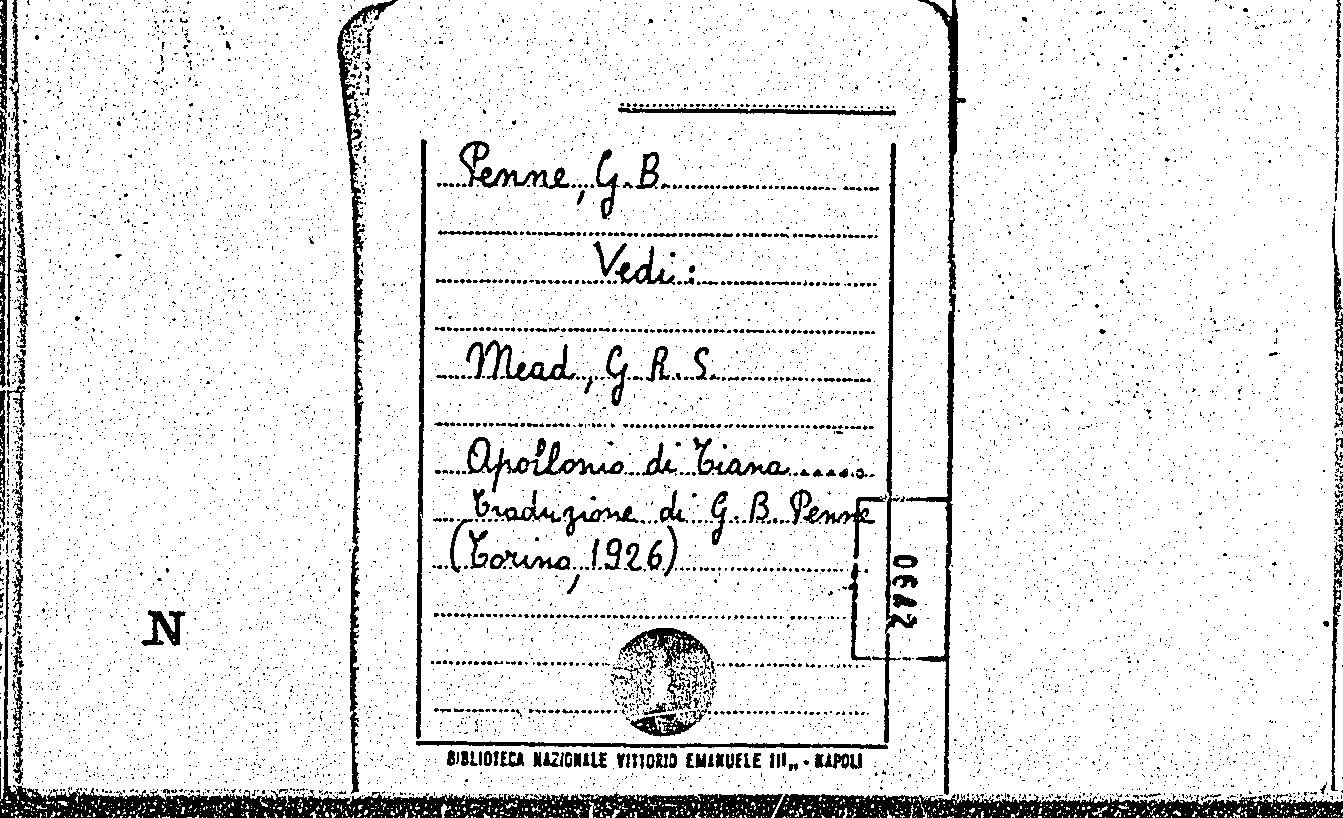 Penne, G. B.
Vedi :
Mead, G. R. S.
Apollonio di Tiana ......
Traduzione di G. B. Penne
(Torino, 1926)
N
BIBLIOTECA NAZIONALE VITTORIO EMANUELE III„ - NAPOLI